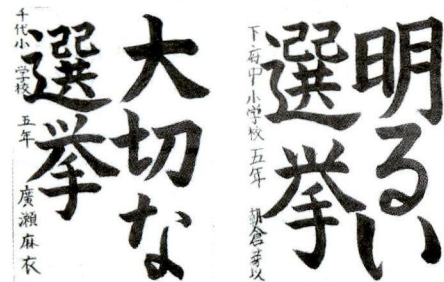 明るい
選挙
下府中小学校 五年 朝倉
大切な
選挙
千代小学校 五年 廣瀬麻衣